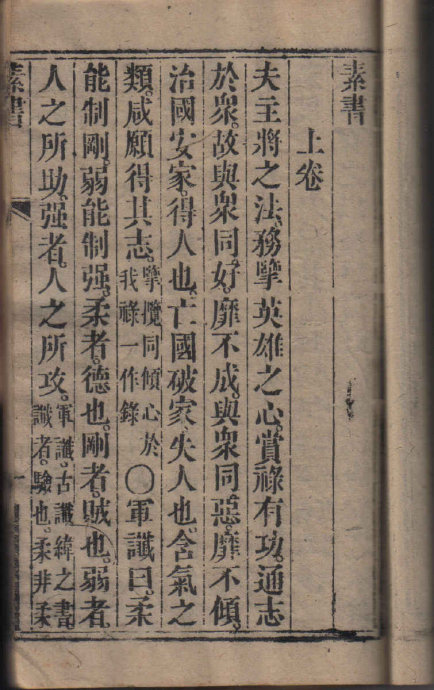 素書
上卷
夫主將之法。務擥英雄之心。賞祿有功。通志
於衆。故與衆同好。靡不成。與衆同惡。靡不傾。
治國安家。得人也。亡國破家。失人也。含氣之
類。咸願得其志。擥攬同傾心於我祿一作錄〇軍讖曰。柔
能制剛。弱能制强。柔者。德也。剛者。賊也。弱者
人之所助。强者。人之所攻。軍讖。古讖緯之書。讖者。驗也。柔非柔
素書